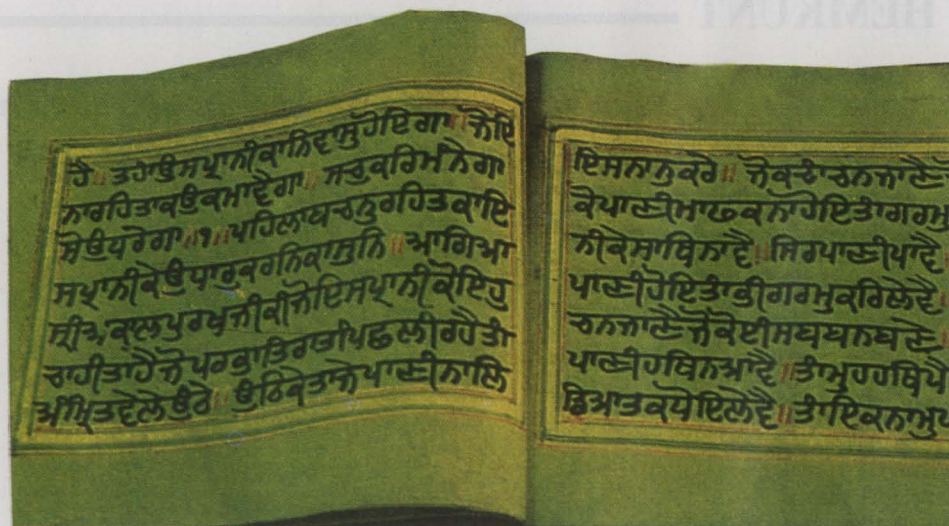 ਹੈ॥ ਤਹਾਉਸਪ੍ਰਾਨੀਕਾਨਿਵਾਸੁਹੋਇਗਾ॥ ਜੋਇ
ਨਾਰਹਿਤਾਕਉਕਮਾਵੈਗਾ॥ ਸਚੁਕਰਿਮੰਨੇਗਾ
ਸੋਉਧਰੇਗਾ॥੧॥ ਪਹਿਲਾਬਚਨੁਰਹਿਤਕਾਇ
ਸਪ੍ਰਾਨੀਕੇਉਧਾਰੁਕਰਨਿਕਾਸੁਨਿ॥ ਆਗਿਆ
ਸ੍ਰੀਅਕਾਲਪੁਰਖੁਜੀਕੀਜੋਇਸਪ੍ਰਾਨੀਕੋਇਹੁ
ਚਾਹੀਤਾਹੈਜੋਪਰਭਾਤਿਰਾਤੀਪਿਛਲੀਰਹੈਤਾ
ਅੰਮ੍ਰਿਤਵੇਲੇਉਠੇ॥ ਉਠਿਕੇਤਾਜੇਪਾਣੀਨਾਲਿ
ਇਸਨਾਨੁਕਰੈ॥ ਜੋਕਢਾਚਨਜਾਣੈ
ਕੋਪਾਣੀਮਾਫਕਨਾਹੋਇਤਾਂਗਰਮ
ਨੀਕੇਸਾਥਿਨਾਵੈ॥ਸਿਰਪਾਣੀਪਾਵੈ
ਪਾਣੀਹੋਇਤਾਂਭੀਗਰਮੁਕਰਿਲੇਵੈ
ਚਨਜਾਣੈਜੇਕੋਈਸਬਬਾਨਬਣੇ
ਪਾਣੀਹਥਿਨਆਵੈ॥ਤਾਂਮੁਹਹਥਿਪੈ
ਛਿਆਤਕਧੋਇਲੇਵੈ॥ਤਾਂਇਕਨਾਮੁ